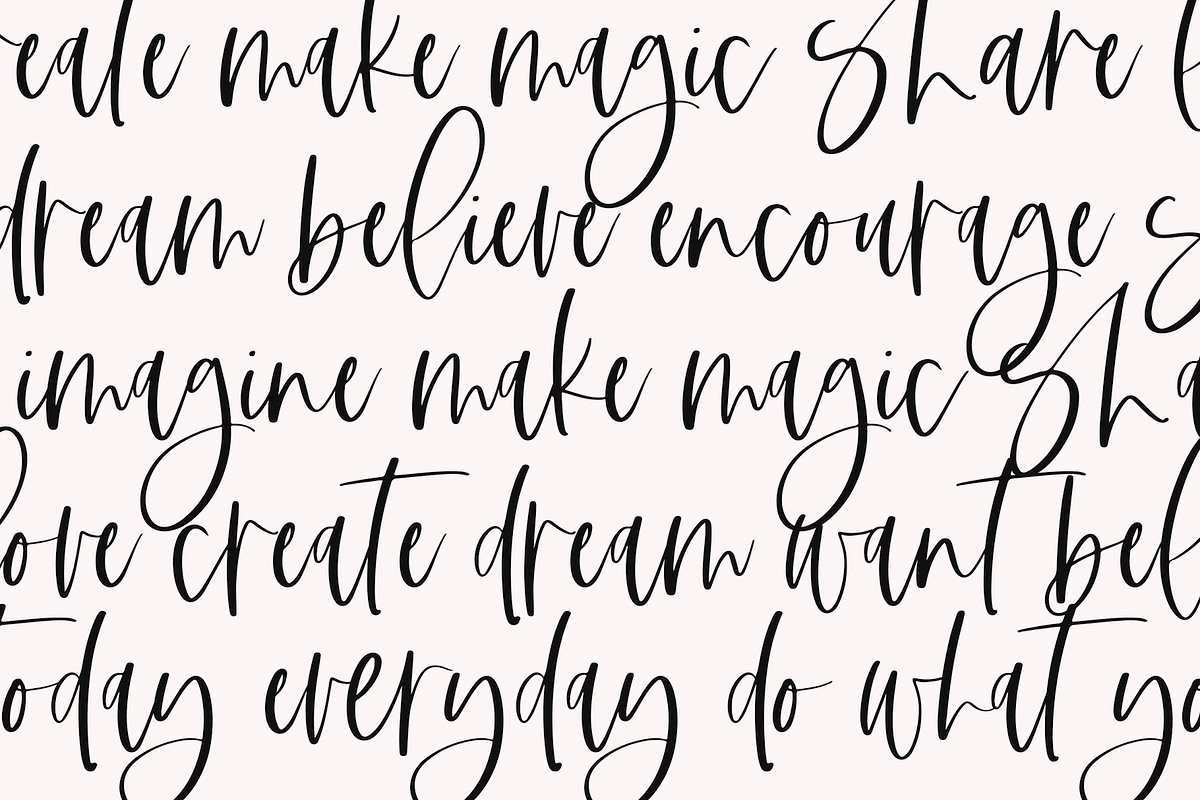 eate make magic share
dream believe encourage s
imagine make magic sha
love create dream want bel
today everyday do what yo